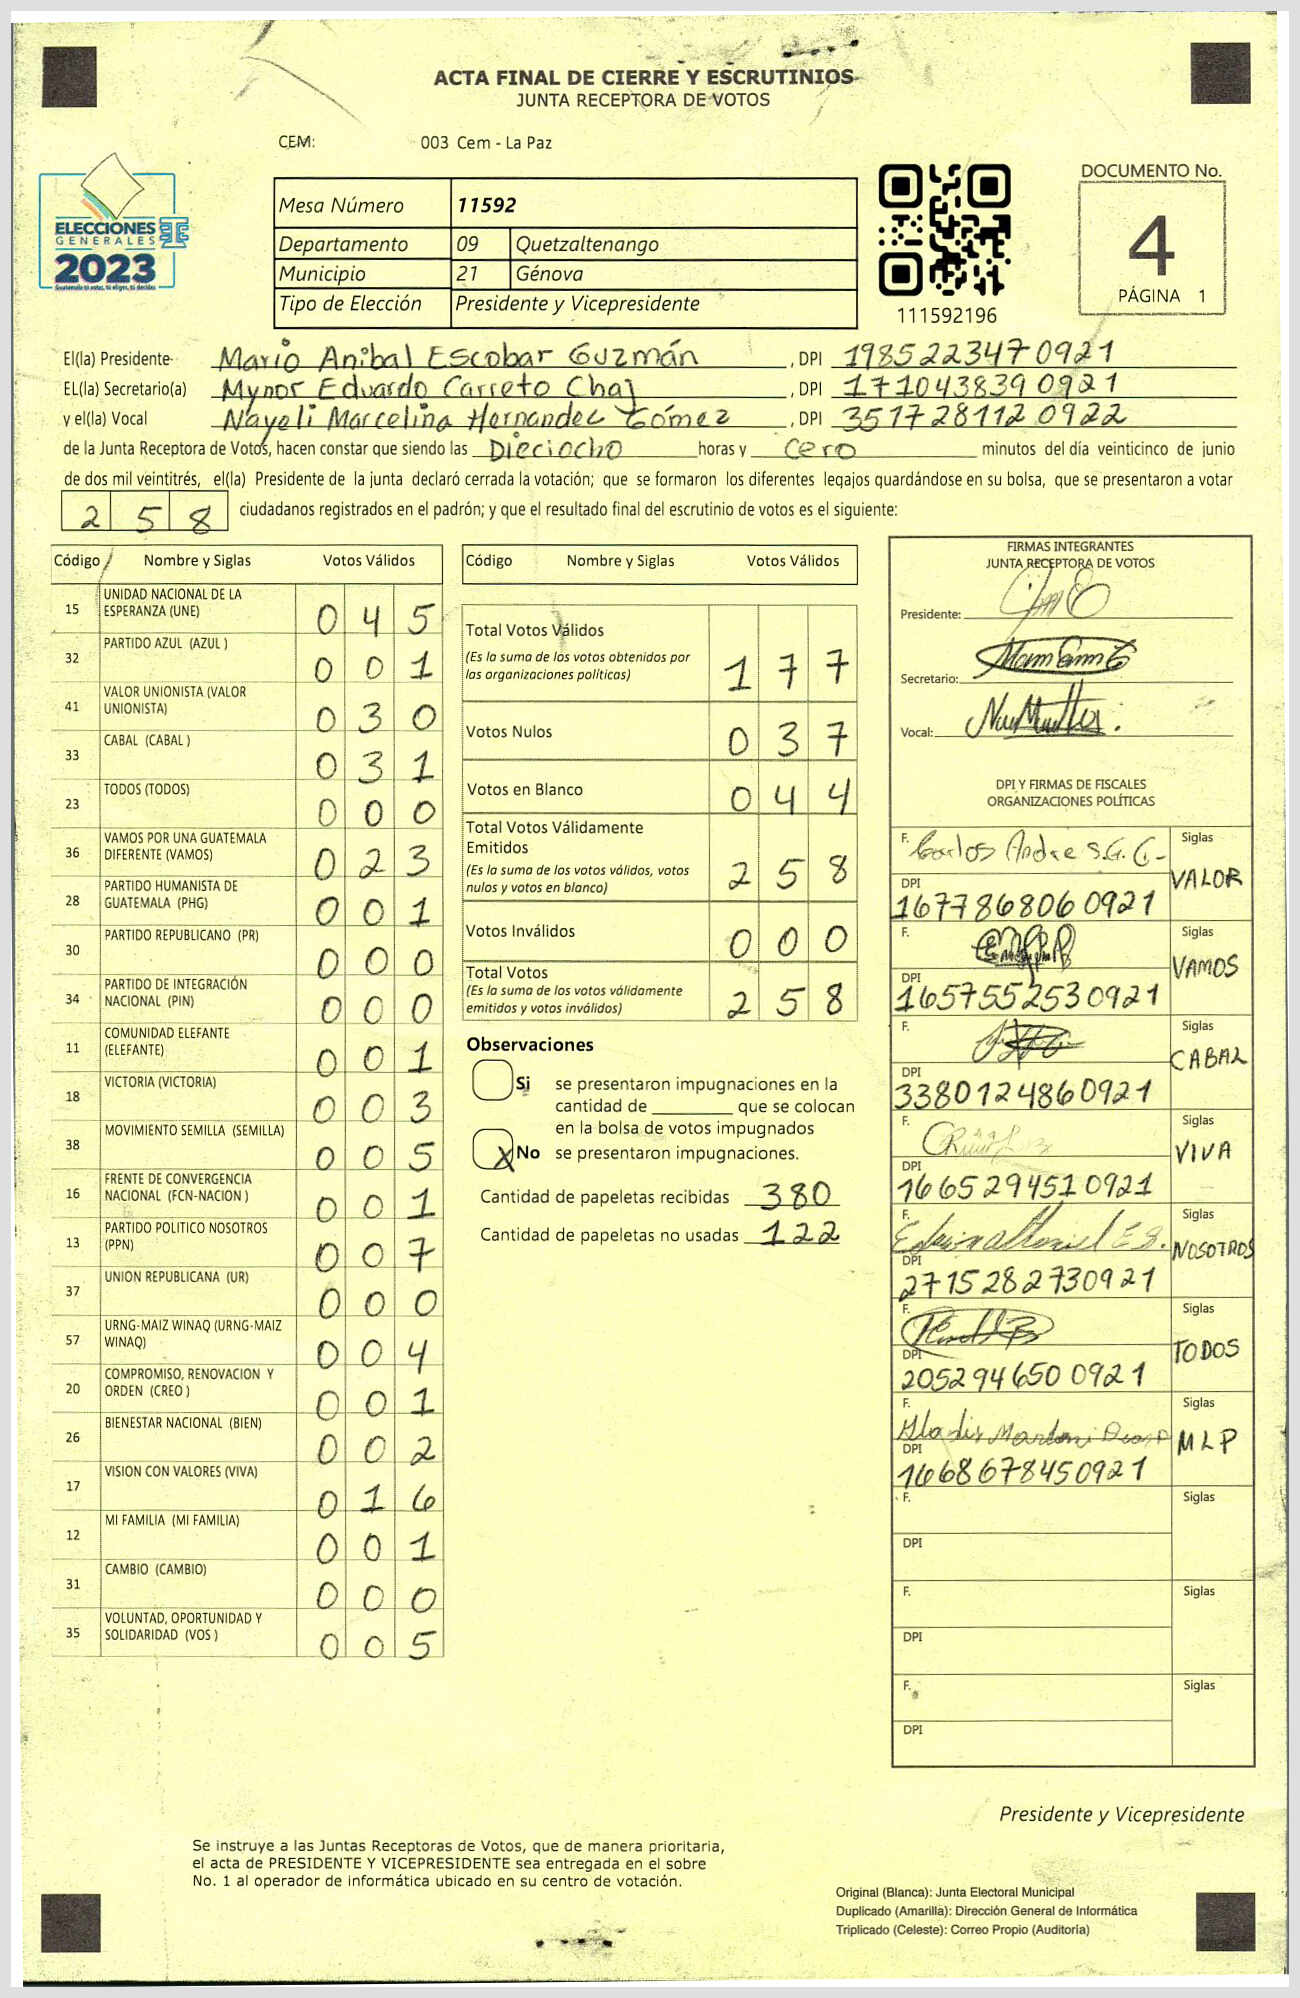 ACTA FINAL DE CIERRE Y ESCRUTINIOS
JUNTA RECEPTORA DE VOTOS
CEM: 003 Cem - La Paz
ELECCIONES
GENERALES
2023
Guatemala tú votas, tú eliges, tú decides
Mesa Número 11592
Departamento 09 Quetzaltenango
Municipio 21 Génova
Tipo de Elección Presidente y Vicepresidente
111592196
DOCUMENTO No.
4
PÁGINA 1
El(la) Presidente Mario Anibal Escobar Guzmán , DPI 1985223470921
EL(la) Secretario(a) Mynor Eduardo Carreto Chaj , DPI 1710438390921
y el(la) Vocal Nayeli Marcelina Hernandez Gómez , DPI 3517281120922
de la Junta Receptora de Votos, hacen constar que siendo las Dieciocho horas y cero minutos del día veinticinco de junio
de dos mil veintitrés, el(la) Presidente de la junta declaró cerrada la votación; que se formaron los diferentes legajos quardándose en su bolsa, que se presentaron a votar
258 ciudadanos registrados en el padrón; y que el resultado final del escrutinio de votos es el siguiente:
Código Nombre y Siglas Votos Válidos
15 UNIDAD NACIONAL DE LA
ESPERANZA (UNE) 045
32 PARTIDO AZUL (AZUL ) 001
41 VALOR UNIONISTA (VALOR
UNIONISTA) 030
33 CABAL (CABAL ) 031
23 TODOS (TODOS) 000
36 VAMOS POR UNA GUATEMALA
DIFERENTE (VAMOS) 023
28 PARTIDO HUMANISTA DE
GUATEMALA (PHG) 001
30 PARTIDO REPUBLICANO (PR) 000
34 PARTIDO DE INTEGRACIÓN
NACIONAL (PIN) 000
11 COMUNIDAD ELEFANTE
(ELEFANTE) 001
18 VICTORIA (VICTORIA) 003
38 MOVIMIENTO SEMILLA (SEMILLA) 005
16 FRENTE DE CONVERGENCIA
NACIONAL (FCN-NACION ) 001
13 PARTIDO POLITICO NOSOTROS
(PPN) 007
37 UNION REPUBLICANA (UR) 000
57 URNG-MAIZ WINAQ (URNG-MAIZ
WINAQ) 004
20 COMPROMISO, RENOVACION Y
ORDEN (CREO ) 001
26 BIENESTAR NACIONAL (BIEN) 002
17 VISION CON VALORES (VIVA) 016
12 MI FAMILIA (MI FAMILIA) 001
31 CAMBIO (CAMBIO) 000
35 VOLUNTAD, OPORTUNIDAD Y
SOLIDARIDAD (VOS ) 005
Código Nombre y Siglas Votos Válidos
Total Votos Válidos
(Es la suma de los votos obtenidos por
las organizaciones políticas) 177
Votos Nulos 037
Votos en Blanco 044
Total Votos Válidamente
Emitidos
(Es la suma de los votos válidos, votos
nulos y votos en blanco) 258
Votos Inválidos 000
Total Votos
(Es la suma de los votos válidamente
emitidos y votos inválidos) 258
Observaciones
Si se presentaron impugnaciones en la
cantidad de ________ que se colocan
en la bolsa de votos impugnados
X No se presentaron impugnaciones.
Cantidad de papeletas recibidas 380
Cantidad de papeletas no usadas 122
FIRMAS INTEGRANTES
JUNTA RECEPTORA DE VOTOS
Presidente:
Secretario:
Vocal:
DPI Y FIRMAS DE FISCALES
ORGANIZACIONES POLÍTICAS
F. Carlos Andre S.G. Siglas
DPI VALOR
1677868060921
F. Siglas
DPI VAMOS
1657552530921
F. Siglas
DPI CABAL
3380124860921
F. Siglas
DPI VIVA
1665294510921
F. Siglas
DPI NOSOTROS
2715282730921
F. Siglas
DPI TODOS
2052946500921
F. Gladis Siglas
DPI MLP
1668678450921
F. Siglas
DPI
F. Siglas
DPI
F. Siglas
DPI
Presidente y Vicepresidente
Se instruye a las Juntas Receptoras de Votos, que de manera prioritaria,
el acta de PRESIDENTE Y VICEPRESIDENTE sea entregada en el sobre
No. 1 al operador de informática ubicado en su centro de votación.
Original (Blanca): Junta Electoral Municipal
Duplicado (Amarilla): Dirección General de Informática
Triplicado (Celeste): Correo Propio (Auditoría)